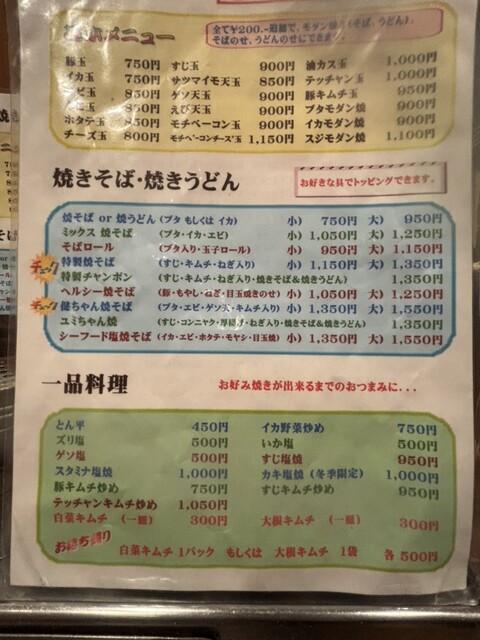 メニュー
全て¥200.-追加で、モダン焼(そば、うどん)、
そばのせ、うどんのせにできます。
豚玉 750円 すじ玉 900円 油カス玉 1,000円
イカ玉 750円 サツマイモ天玉 850円 テッチャン玉 1,000円
ビ玉 850円 ゲソ天玉 900円 豚キムチ玉 950円
玉 850円 えび天玉 900円 ブタモダン焼 900円
ホタテ玉 850円 モチベーコン玉 900円 イカモダン焼 900円
チーズ玉 800円 モチベーコンチーズ玉 1,150円 スジモダン焼 1,100円
焼きそば・焼きうどん
お好きな具でトッピングできます。
焼そば or 焼うどん(ブタ もしくは イカ) 小) 750円 大) 950円
ミックス 焼そば (ブタ・イカ・エビ) 小) 1,050円 大) 1,250円
そばロール (ブタ入り・玉子ロール) 小) 950円 大) 1,150円
特製焼そば (すじ・キムチ・ねぎ入り) 小) 1,150円 大) 1,350円
特製チャンポン (すじ・キムチ・ねぎ入り・焼きそば&焼きうどん) 1,350円
ヘルシー焼そば (豚・もやし・ねぎ・目玉焼きのせ) 小) 1,050円 大) 1,250円
チェック 健ちゃん焼そば (ブタ・エビ・ゲソ天・キムチ入り) 小) 1,350円 大) 1,550円
ユミちゃん焼 (すじ・コンニャク・厚揚げ・ねぎ入り・焼きそば&焼きうどん) 1,350円
シーフード塩焼そば (イカ・エビ・ホタテ・モヤシ・目玉焼) 小) 1,350円 大) 1,550円
一品料理
お好み焼きが出来るまでのおつまみに...
とん平 450円 イカ野菜炒め 750円
ズリ塩 500円 いか塩 500円
ゲソ塩 500円 すじ塩焼 950円
スタミナ塩焼 1,000円 カキ塩焼(冬季限定) 1,000円
豚キムチ炒め 750円 すじキムチ炒め 950円
テッチャンキムチ炒め 1,050円
白菜キムチ (一皿) 300円 大根キムチ (一皿) 300円
お持ち帰り
白菜キムチ 1パック もしくは 大根キムチ 1袋 各 500円